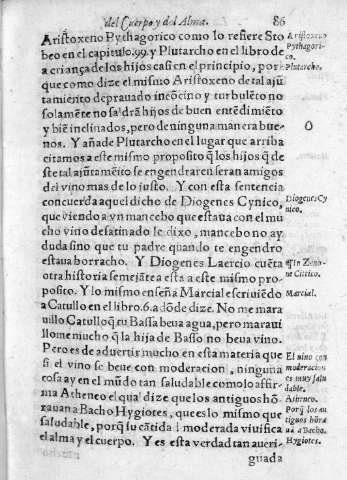 del Cuerpo y del Alma. 86
Aristoxeno Pythagorico como lo refiere Sto
beo en el capitulo.99.y Plutarcho en el libro de
a criança de los hijos casi en el principio, por
que como dize el mismo Aristoxeno de tal ajũ
tamiento deprauado incõcino y turbulẽto no
solamẽte no saldrã hijos de buen entẽdimiẽto
y biẽ inclinados, pero de ninguna manera bue-
nos. Y añade Plutarcho en el lugar que arriba
citamos a este mismo proposito q̃ los hijos q̃ de
ste tal ajũtamẽito se engendraren seran amigos
del vino mas de lo justo. Y con esta sentencia
concuerda aquel dicho de Diogenes Cynico,
que viendo a vn mancebo que estaua con el mu
cho vino desatinado le dixo, mancebo no ay
duda sino que tu padre quando te engendro
estaua borracho. Y Diogenes Laercio cuẽta
otra historia semejãte a esta a este mismo pro-
posito. Y lo mismo enseña Marcial escriuiẽdo
a Catullo en el libro.6.a dõde dize. No me mara
uillo Catullo q̃ tu Bassa beua agua, pero maraui
llome mucho q̃ la hija de Basso no beua vino.
Pero es de aduertir mucho en esta materia que
si el vino se beue con moderacion, ninguna
cosa ay en el mũdo tan saludable como lo affir
ma Atheneo el qua! dize que los antiguos hõ
rauan a Bacho Hygiotes, que es lo mismo que
saludable, porq̃ su cãtida! moderada viuifica
el alma y el cuerpo. Y es esta verdad tan aueri-
guada
Aristoxeno
Pythagori-
co.
Plutarcho.
O
Diogenes Cy
nico.
¶ In Zeno-
ne Cittico.
Marcial.
El vino con
moderacion
es muy salu
dable.
Atheneo.
Porq̃ los an
tiguos hõra
uã a Bacho.
Hygiotes.